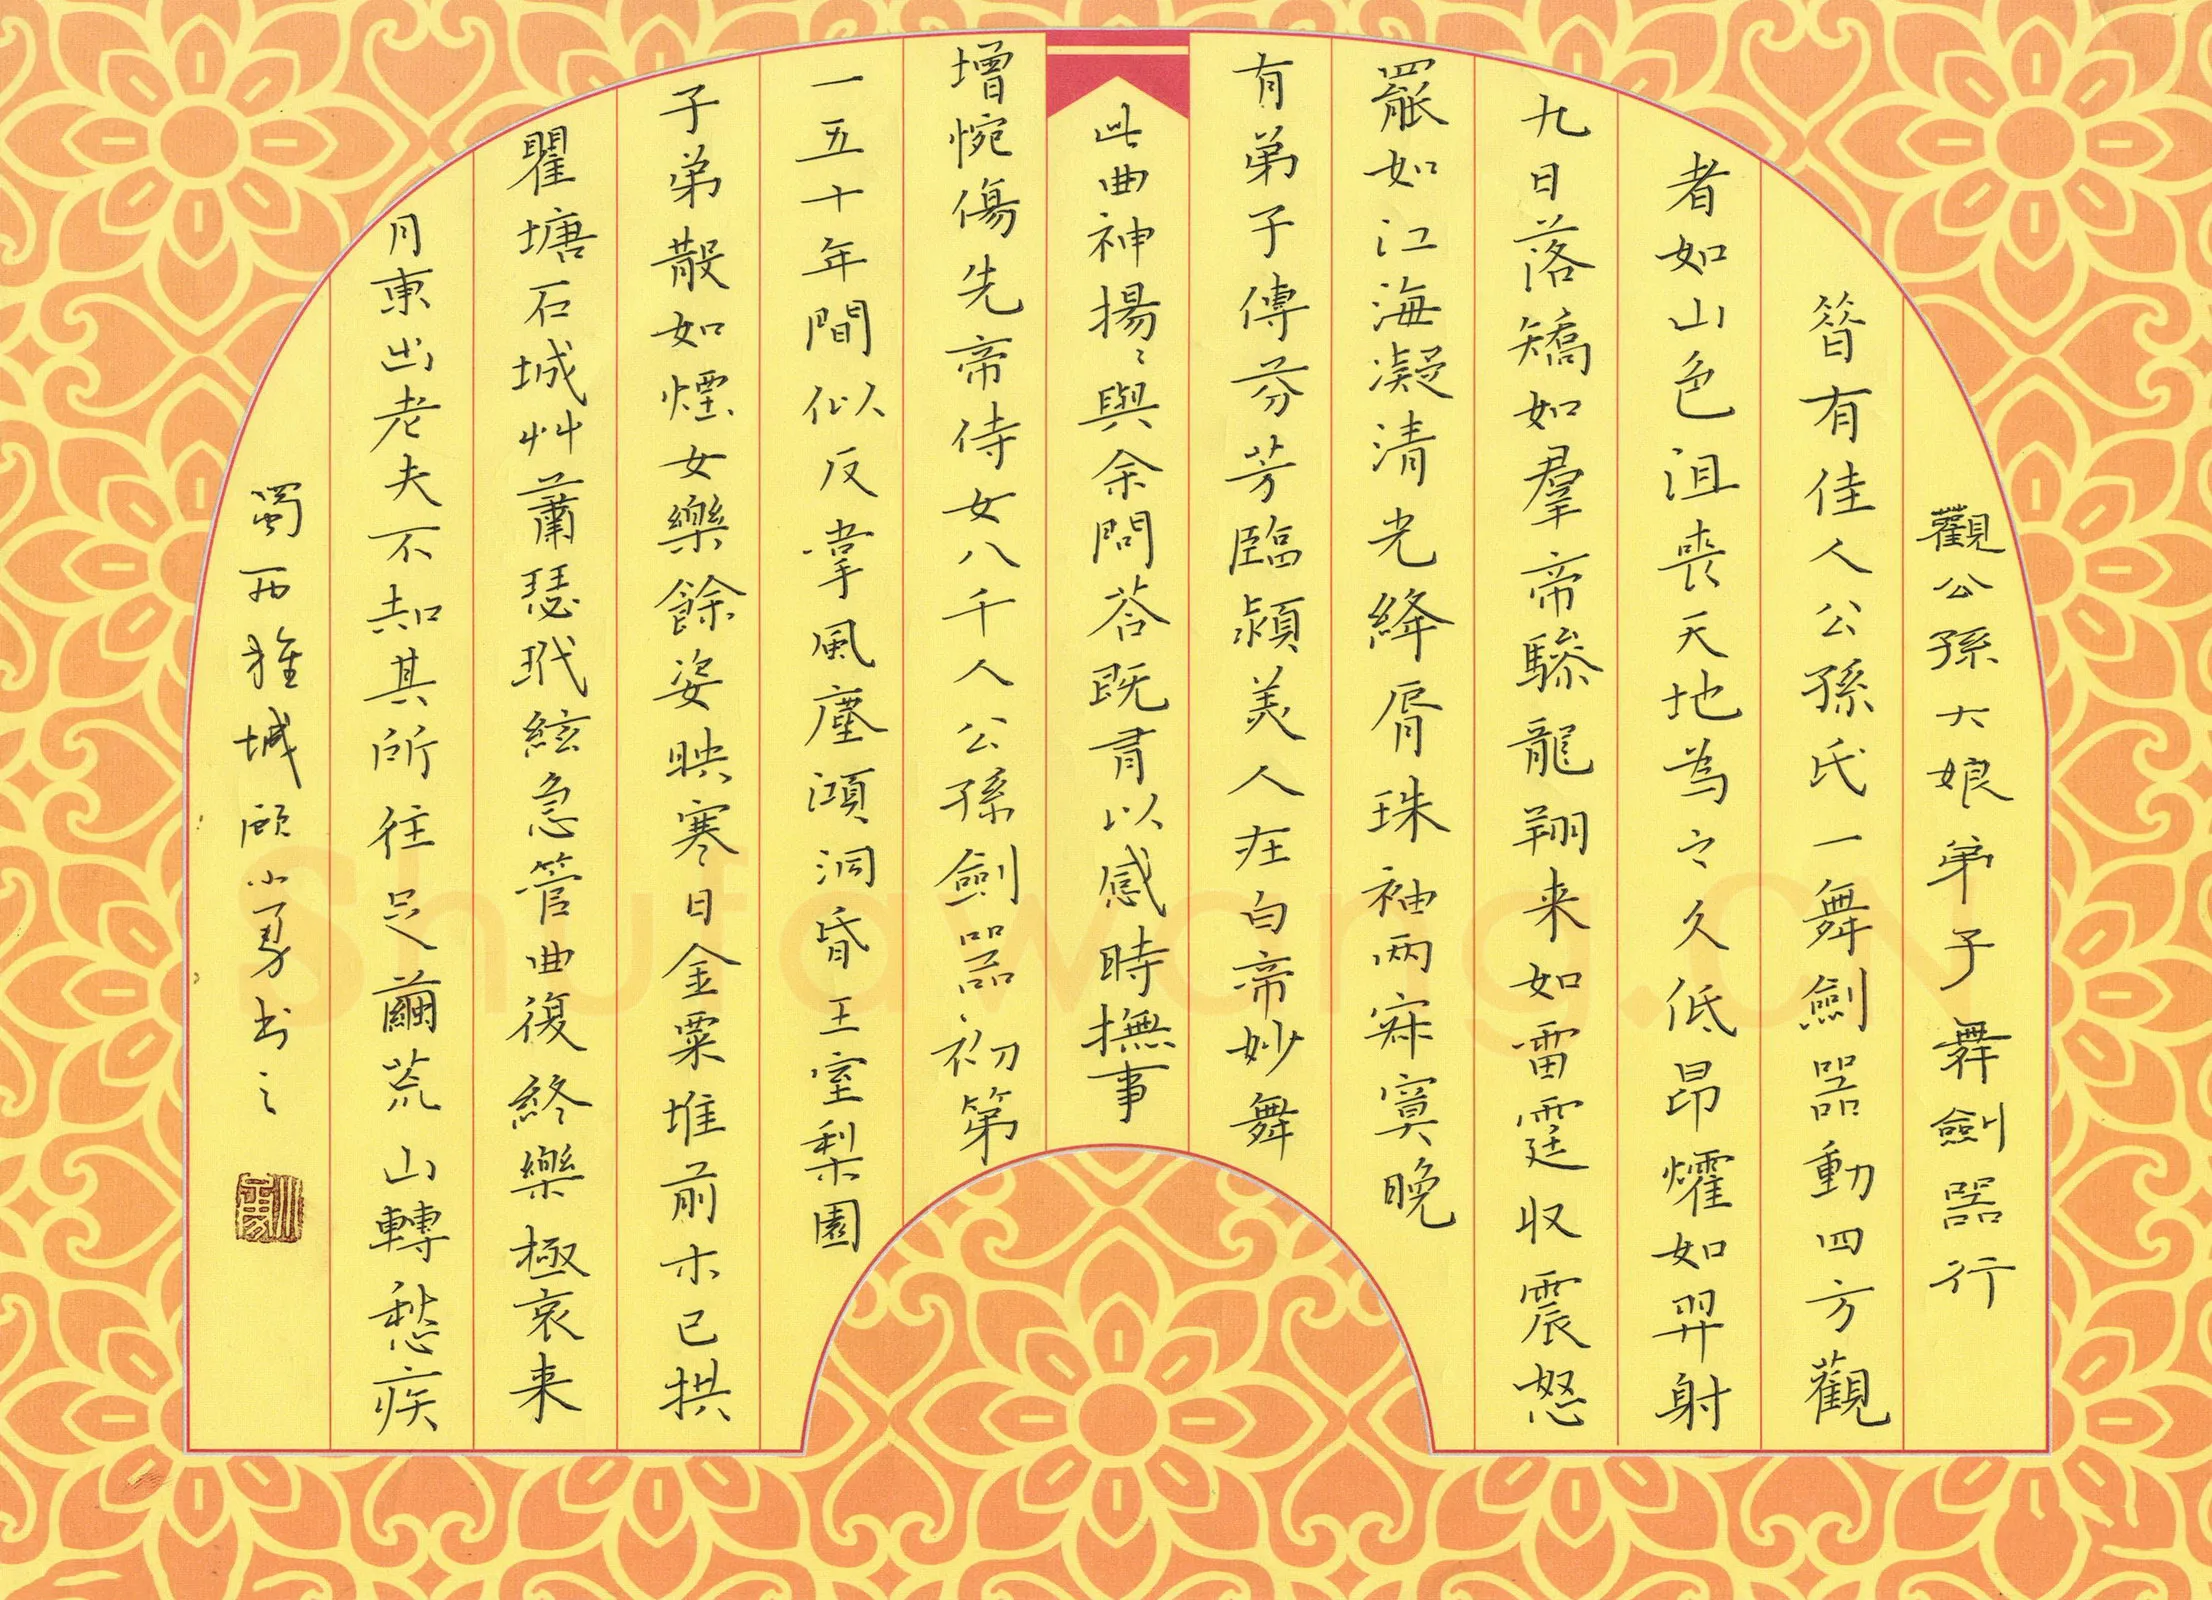 觀公孫大娘弟子舞劍器行
昝有佳人公孫氏一舞劍器動四方觀
者如山色沮喪天地為之久低昂㸌如羿射
九日落矯如羣帝驂龍翔来如雷霆收震怒
罷如江海凝清光絳脣珠袖兩寂寞晚
有弟子傳芬芳臨潁美人在白帝妙舞
此曲神揚〻與余問荅既有以感時撫事
增惋傷先帝侍女八千人公孫劍器初第
一五十年間似反掌風塵澒洞昏王室梨園
子弟散如煙女樂餘姿映寒日金粟堆前木已拱
瞿塘石城艸蕭瑟玳絃急管曲復終樂極哀来
月東出老夫不知其所往足繭荒山轉愁疾
蜀西雅城顧小勇书之
Shufawang.CN